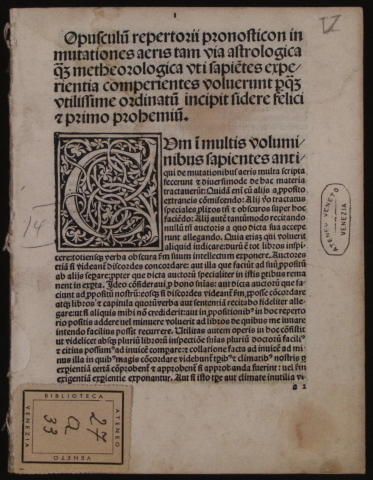 Opusculũ repertorii pronosticon in
mutationes aeris tam via astrologica
q̃ʒ metheorologica vti sapiẽtes expe-
rientia comperientes voluerunt p̱q̃ʒ
vtilissime ordinatũ incipit sidere felici
⁊ primo prohemiũ.
CVm ĩ multis volumi-
nibus sapientes anti-
qui de mutationibus aeris multa scripta
fecerunt ⁊ diuersimode de hac materia
tractauerũt: Quidã em̃ cũ alijs
extraneis cõmiscendo: Alij vo tractatus
speciales plixos ñ ⁊ obscuros super hoc
faciẽdo: Alij autẽ tantũmodo recitando
nullũ sñ auctoris a quo dicta sua accepe
runt allegando. Quia etiaʒ qui voluerit
aliquid indicare: durũ ẽ tot libros inspi
cere: totiensq̃ verba obscura fm̃ suum intellectum exponere. Auctores
etiã si videant discordes concordare: aut illa que faciũt ad suũ
ab alijs segare: ppter que dicta auctorũ specialiter in istis ptibus rema
nent in extra. Ideo cõsiderãui p bono
ciunt ad nostrũ:
atq̃ libros ⁊ capitula quorũ verba aut sententiã recitabo fideliter alle-
gare: ut si aliquis mihi nõ crediderit: aut in hoc reperto
rio positis addere uel minuere voluerit ad libros de quibus me iuuare
intendo facilius posse recurrere. Utilitas autem operis in hoc cõsistit
ut videlicet absq̃ pluriũ librorũ inspectiõe pluriũ doctorũ facile
⁊ citius possim ad inuicẽ compare: ⁊ collatione facta ad inuicẽ ad mi-
nus illa in quibus magis cõcordare videbunt ⁊ climatibus nostris p
exgientiã certã cõprobent ⁊ approbanda fuerint: uel fm̃
exigentiã exgientie exponantur. Aut si in climate inutilia vi-
a 2
V
14
ATENEO VENETO
VENEZIA
BIBLIOTECA
ATENEO
VENETO
VENEZIA
27
a
33